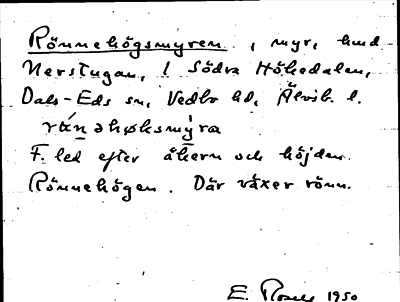 Rönnehögsmyren, myr, hmd
Nerstugan, 1 Södra Hökedalen,
Dals-Eds sn, Vedbo hd, Älvsb. l.
rænəhøksmyra
F. led efter åkern och höjden
Rönnehögen. Där växer rönn.
E. 1950